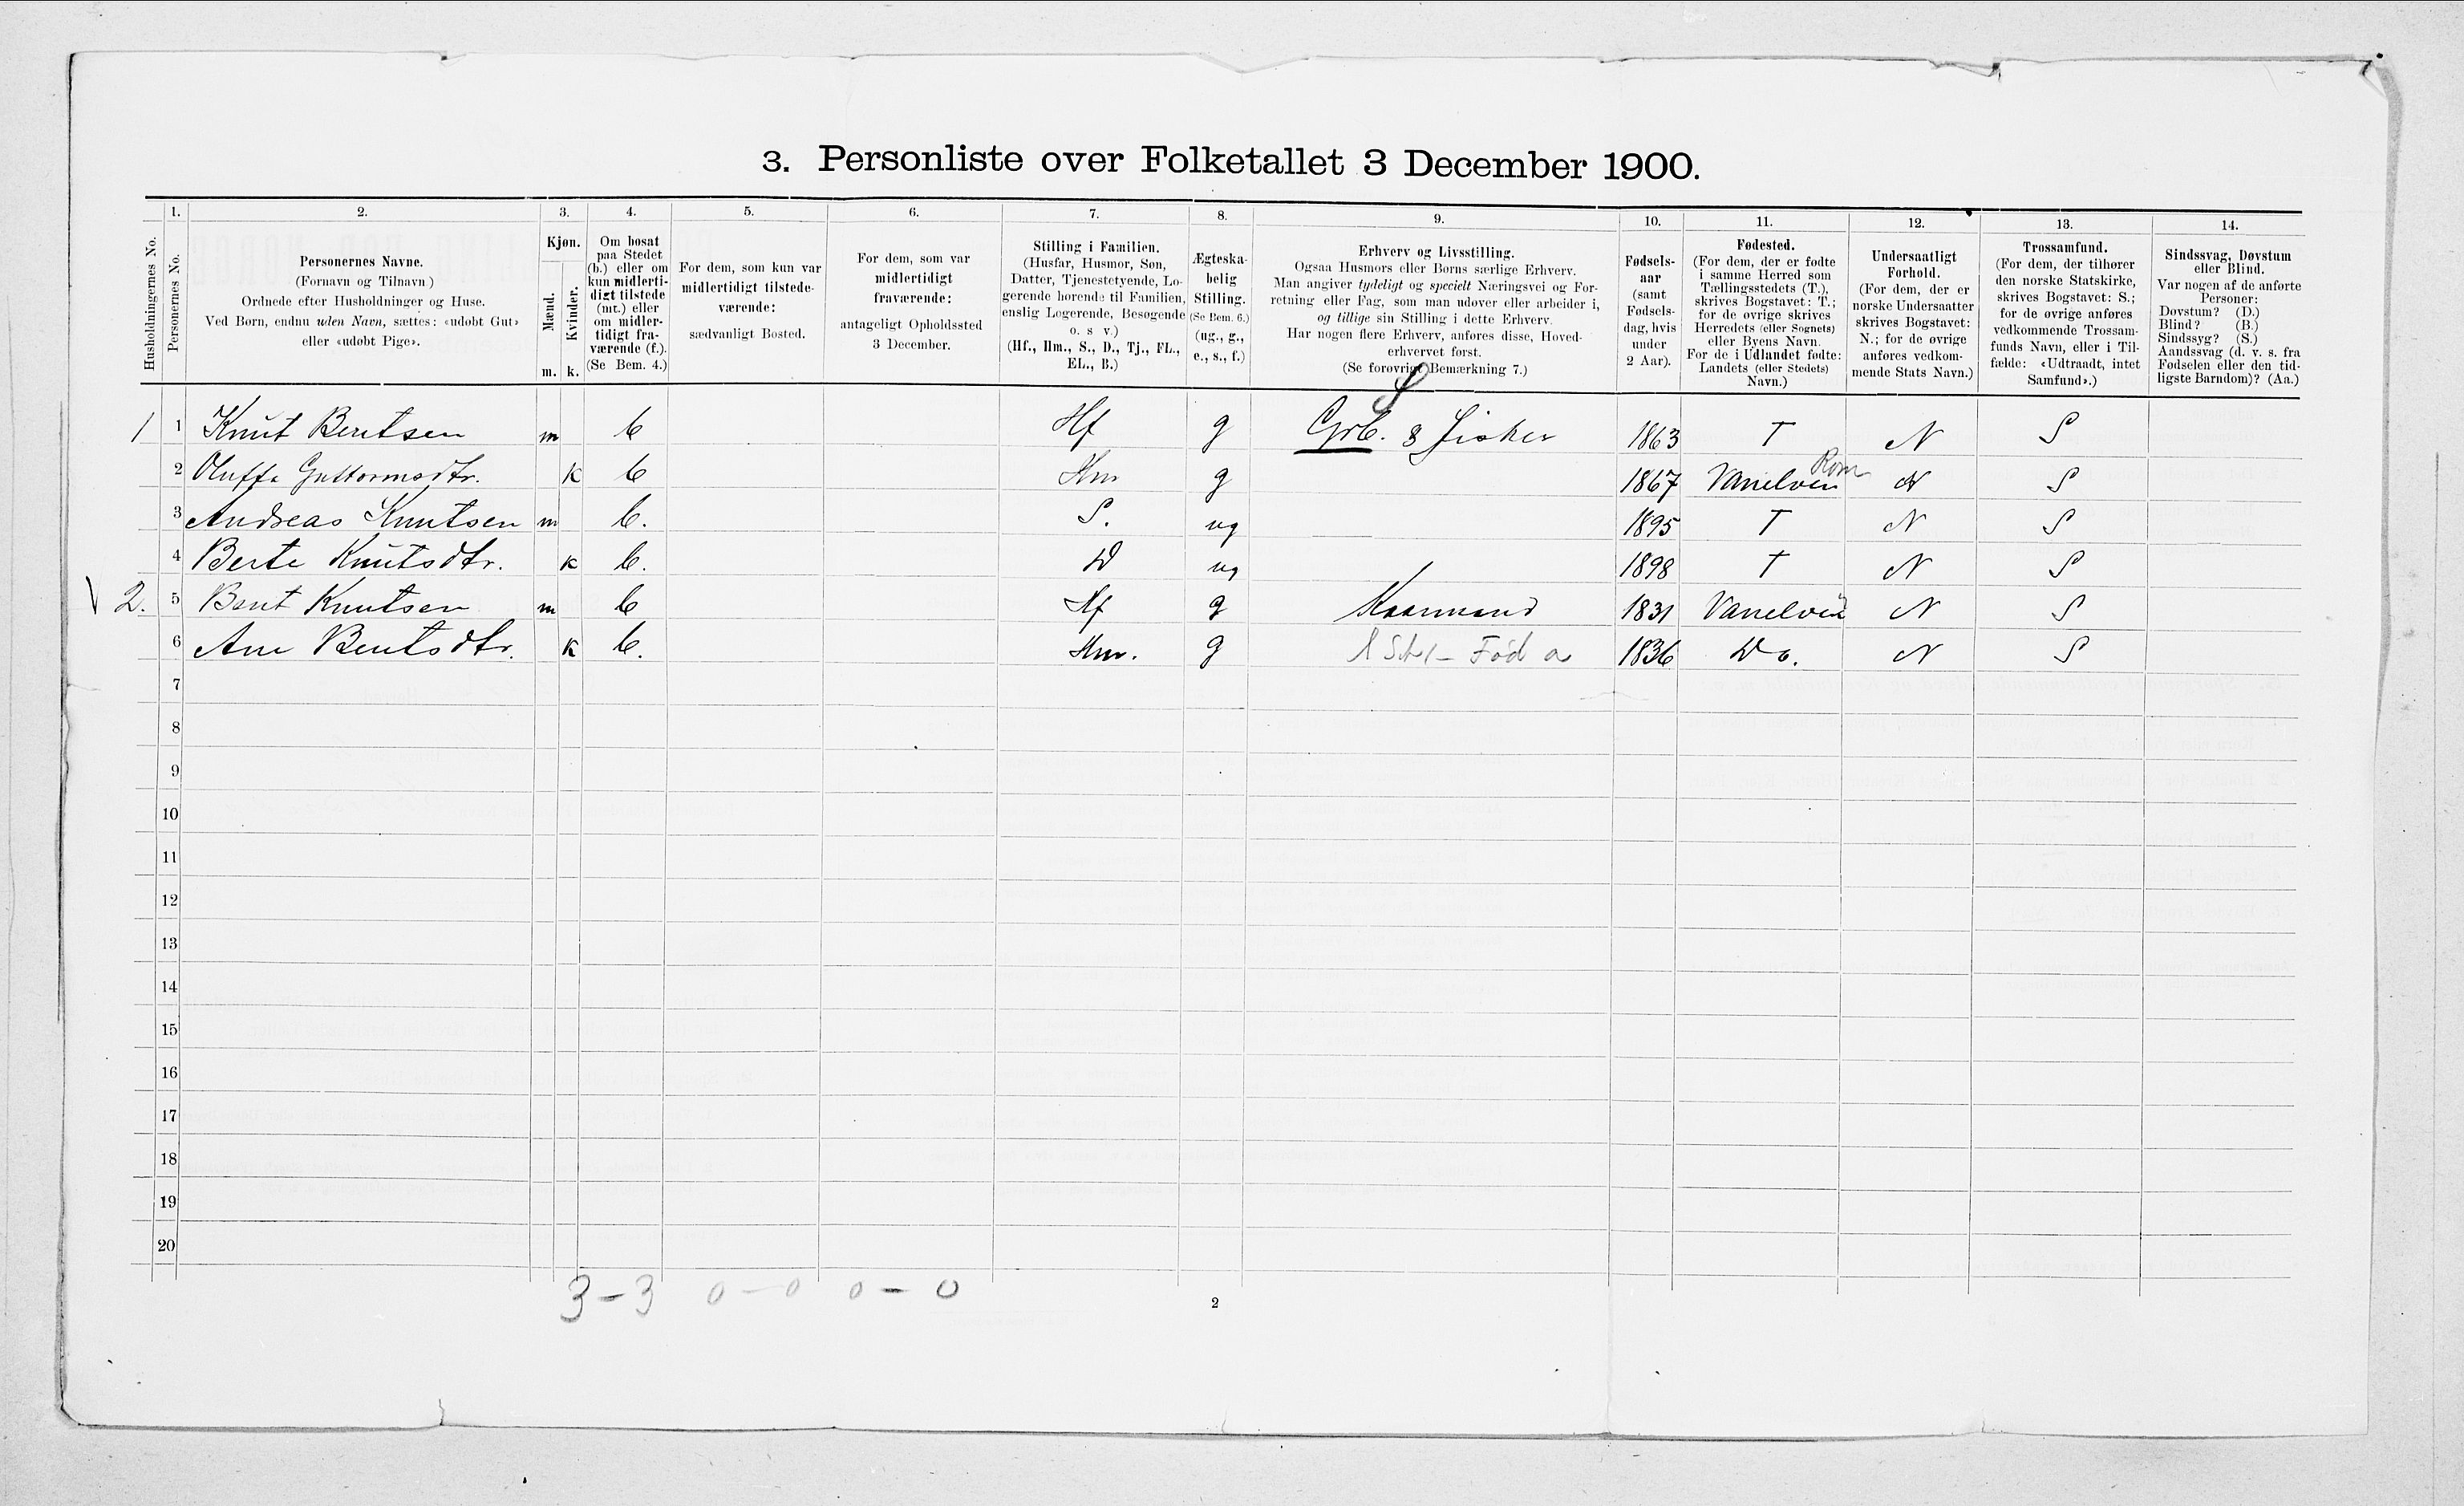 3. Personliste over Folketallet 3 December 1900.
1. 2. 3. 4. 5. 6. 7. 8. 9. 10. 11. 12. 13. 14.
Husholdningernes No.
Personernes No.
Personernes Navne.
(Fornavn og Tilnavn)
Ordnede efter Husholdninger og Huse.
Ved Børn, endnu uden Navn, sættes: «udøbt Gut»
eller «udøbt Pige».
Kjøn.
Mænd.
Kvinder.
m. k.
Om bosat
paa Stedet
(b.) eller om
kun midlerti-
digt tilstede
(mt.) eller
om midler-
tidigt fra-
værende (f.).
(Se Bem. 4.)
For dem, som kun var
midlertidigt tilstede-
værende:
sædvanligt Bosted.
For dem, som var
midlertidigt
fraværende:
antageligt Opholdssted
3 December.
Stilling i Familien.
(Husfar, Husmor, Søn,
Datter, Tjenestetyende, Lo-
gerende hørende til Familien,
enslig Logerende, Besøgende
o. s v.)
(Hf., Hm., S., D., Tj., FL.,
EL., B.)
Ægteska-
belig
Stilling.
(Se Bem. 6.)
(ug., g.,
e., s., f.)
Erhverv og Livsstilling.
Ogsaa Husmors eller Børns særlige Erhverv.
Man angiver tydeligt og specielt Næringsvei og For-
retning eller Fag, som man udøver eller arbeider i,
og tillige sin Stilling i dette Erhverv.
Har nogen flere Erhverv, anføres disse, Hoved-
erhvervet først.
(Se forøvrigt Bemærkning 7.)
Fødsels-
aar
(samt
Fødsels-
dag, hvis
under
2 Aar).
Fødested.
(For dem, der er fødte
i samme Herred som
Tællingsstedets (T.),
skrives Bogstavet: T.;
for de øvrige skrives
Herredets (eller Sognets)
eller Byens Navn.
For de i Udlandet fødte:
Landets (eller Stedets)
Navn.)
Undersaatligt
Forhold.
(For dem, der er
norske Undersaatter
skrives Bogstavet:
N.; for de øvrige
anføres vedkom-
mende Stats Navn.)
Trossamfund.
(For dem, der tilhører
den norske Statskirke,
skrives Bogstavet: S.;
for de øvrige anføres
vedkommende Trossam-
funds Navn, eller i Til-
fælde: «Udtraadt, intet
Samfund».)
Sindssvag, Døvstum
eller Blind.
Var nogen af de anførte
Personer:
Døvstum? (D.)
Blind? (B.)
Sindssyg? (S.)
Aandssvag (d. v. s. fra
Fødselen eller den tid-
ligste Barndom)? (Aa.)
1 1 Knut Bentsen m b Hf g Grb. & fisker 1863 T N S
2 Oluffa Guttormsdtr. k b Hm g 1867 Vanelven Rom N S
3 Andreas Knutsen m b. S. ug 1895 T N S
4 Berte Knutsdtr. k b. D ug 1898 T N S
2. 5 Bent Knutsen m b Hf g Kaarmand 1831 Vanelven N S
6 Ane Bentsdtr. k b. Hm. g Fød a 1836 Do. N S
7
8
9
10
11
12
13
14
15
16
17
18
19
20
3 - 3 0 - 0 0 - 0
2